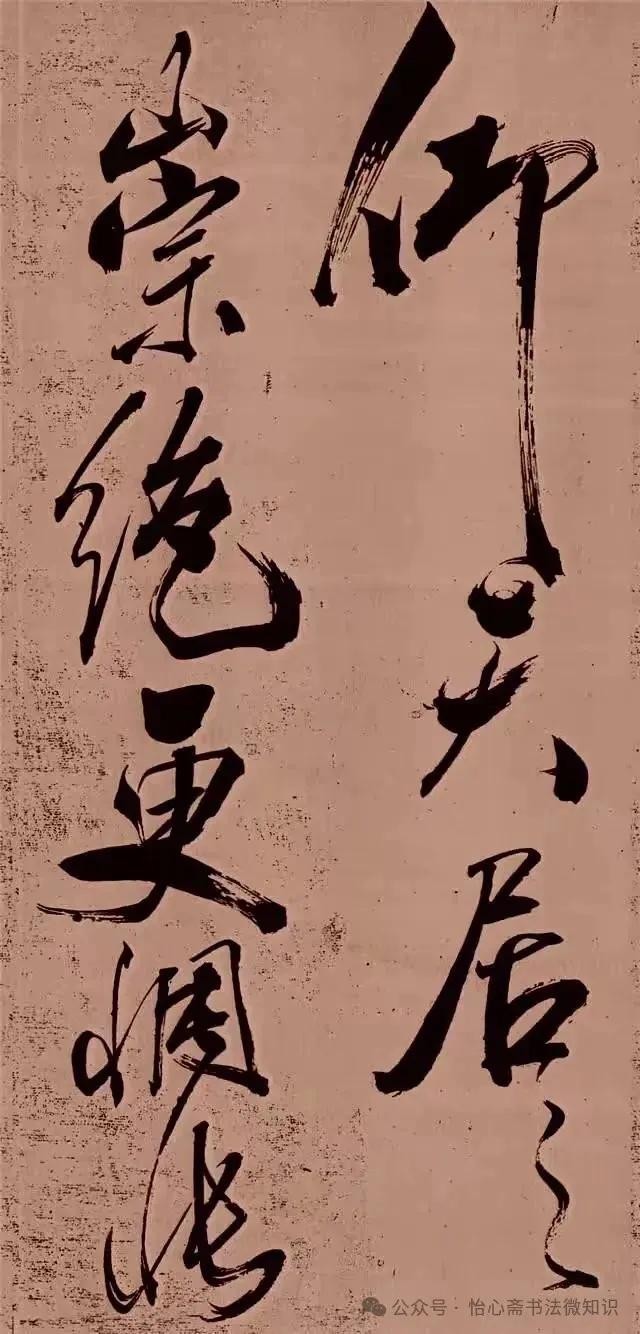 仰居之
崇絶更惆悵
公众号 · 怡心斋书法微知识